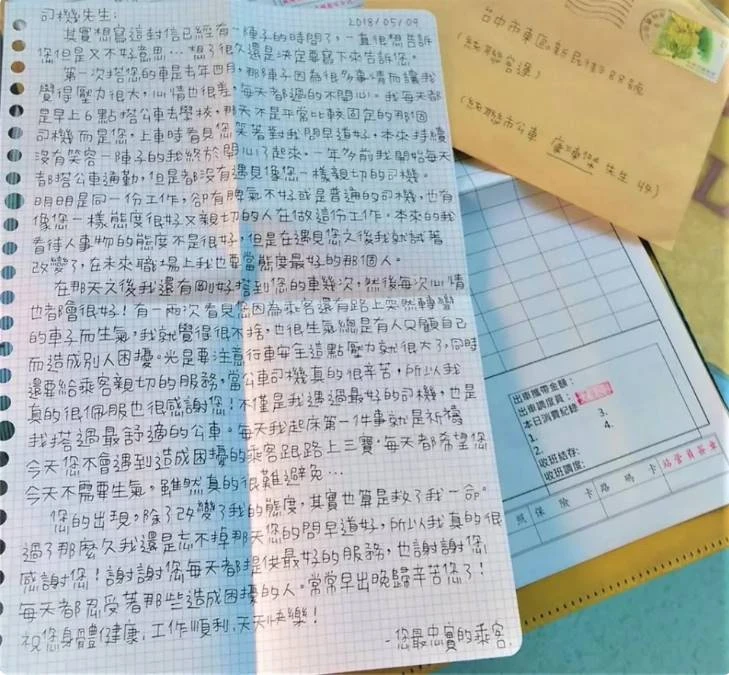 司機先生: 2018/05/09
其實想寫這封信已經有一陣子的時間了,一直很想告訴
您但是又不好意思…想了很久還是決定要寫下來告訴您。
第一次搭您的車是去年四月,那陣子因為很多事情而讓我
覺得壓力很大,心情也很差,每天都過的不開心。我每天都
是早上6點搭公車去學校,那天不是平常比較固定的那個
司機而是您,上車時看見您笑著對我問早道好,本來持續
沒有笑容一陣子的我終於開心了起來。一年多前我開始每天
都搭公車通勤,但是都沒有遇見像您一樣親切的司機。
明明是同一份工作,卻有脾氣不好或是普通的司機,也有
像您一樣態度很好又親切的人在做這份工作。本來的我
看待人事物的態度不是很好,但是在遇見您之後我就試著
改變了,在未來職場上我也要當態度最好的那個人。
在那天之後我還有剛好搭到您的車幾次,然後每次心情
也都會很好!有一兩次看見您因為乘客還有路上突然轉彎
的車子而生氣,我就覺得很不捨,也很生氣總是有人只顧自己
而造成別人困擾。光是要注意行車安全這點壓力就很大了,同時
還要給乘客親切的服務,當公車司機真的很辛苦,所以我
真的很佩服也很感謝您!不僅是我遇過最好的司機,也是
我搭過最舒適的公車。每天我起床第一件事就是祈禱
今天您不會遇到造成困擾的乘客跟路上三寶,每天都希望您
今天不需要生氣。雖然真的很難避免…
您的出現,除了改變了我的態度,其實也算是救了我一命。
過了那麼久我還是忘不掉那天您的問早道好,所以我真的很
感謝您!謝謝您每天都提供最好的服務,也謝謝您
每天都忍受著那些造成困擾的人。常常早出晚歸辛苦您了!
祝您身體健康,工作順利,天天快樂!
-您最忠實的乘客
台中市東區新民街88號
(統聯客運)
(統聯市公車 先生 44)
出車攜帶金額:
出車調度員:
本日消費紀錄
1. 3.
2. 4.
收班結存:
收班調度:
照 保 險 卡 路 碼 卡 站管員簽章